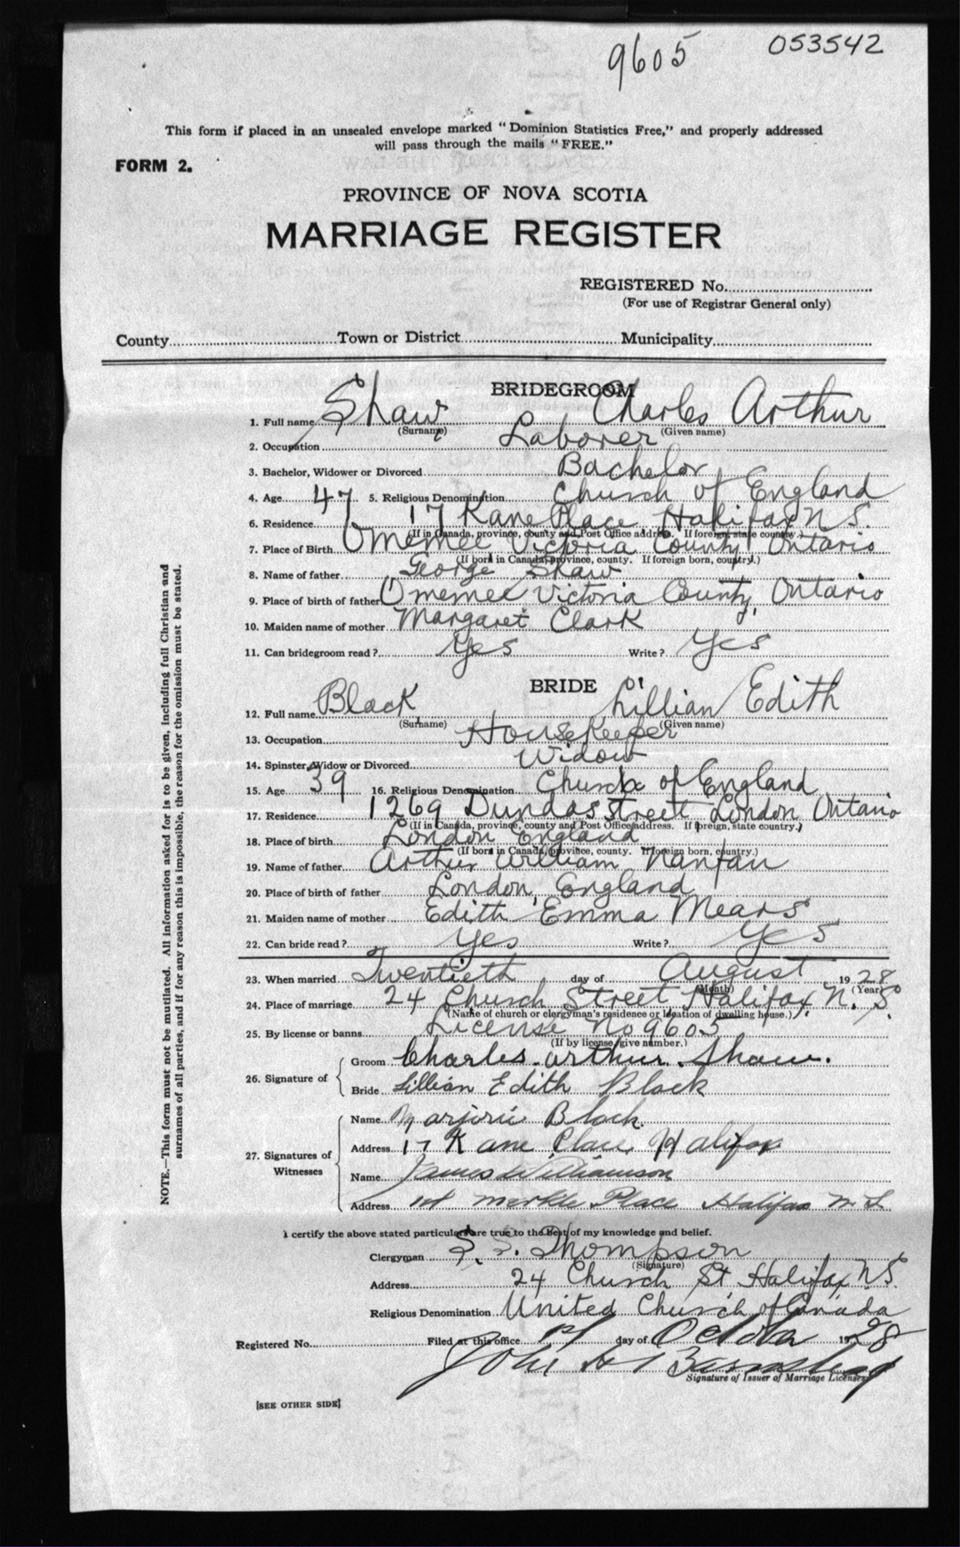 9605 053542
This form if placed in an unsealed envelope marked "Dominion Statistics Free," and properly addressed
will pass through the mails "FREE."
FORM 2.
PROVINCE OF NOVA SCOTIA
MARRIAGE REGISTER
REGISTERED No.
(For use of Registrar General only)
County Town or District Municipality
BRIDEGROOM
1. Full name Shaw Charles Arthur
(Surname) (Given name)
2. Occupation Laborer
3. Bachelor, Widower or Divorced Bachelor
4. Age 47 5. Religious Denomination Church of England
6. Residence 17 Kane Place Halifax N S.
(If in Canada, province, county and Post Office address. If foreign state country.)
7. Place of Birth Omemee Victoria County Ontario
(If born in Canada, province, county. If foreign born, country.)
8. Name of father George Shaw
9. Place of birth of father Omemee Victoria County, Ontario
10. Maiden name of mother Margaret Clark
11. Can bridegroom read? Yes Write? Yes
BRIDE
12. Full name Black Lillian Edith
(Surname) (Given name)
13. Occupation Housekeeper
14. Spinster, Widow or Divorced Widow
15. Age 39 16. Religious Denomination Church of England
17. Residence 1269 Dundas Street London Ontario
(If in Canada, province, county and Post Office address. If foreign, state country.)
18. Place of birth London England
(If born in Canada, province, county. If foreign born, country.)
19. Name of father Arthur William Nanfan
20. Place of birth of father London, England
21. Maiden name of mother Edith Emma Mears
22. Can bride read? Yes Write? Yes
23. When married Twentieth day of August 1928
(Month) (Year)
24. Place of marriage 24 Church Street Halifax N. S.
(Name of church or clergyman's residence or location of dwelling house.)
25. By license or banns License No 9605
(If by license, give number.)
26. Signature of Groom Charles Arthur Shaw.
Bride Lillian Edith Black
27. Signatures of Witnesses Name Marjorie Black.
Address 17 Kane Place, Halifax
Name James Williamson
Address Merkle Place Halifax N. S.
I certify the above stated particulars are true to the best of my knowledge and belief.
Clergyman S. S. Thompson
(Signature)
Address 24 Church St Halifax N S.
Religious Denomination United Church of Canada
Registered No. Filed at this office 1st day of October 1928
John H Barnstead
Signature of Issuer of Marriage Licenses
[SEE OTHER SIDE]
NOTE.—This form must not be mutilated. All information asked for is to be given, including full Christian and
surnames of all parties, and if for any reason this is impossible, the reason for the omission must be stated.